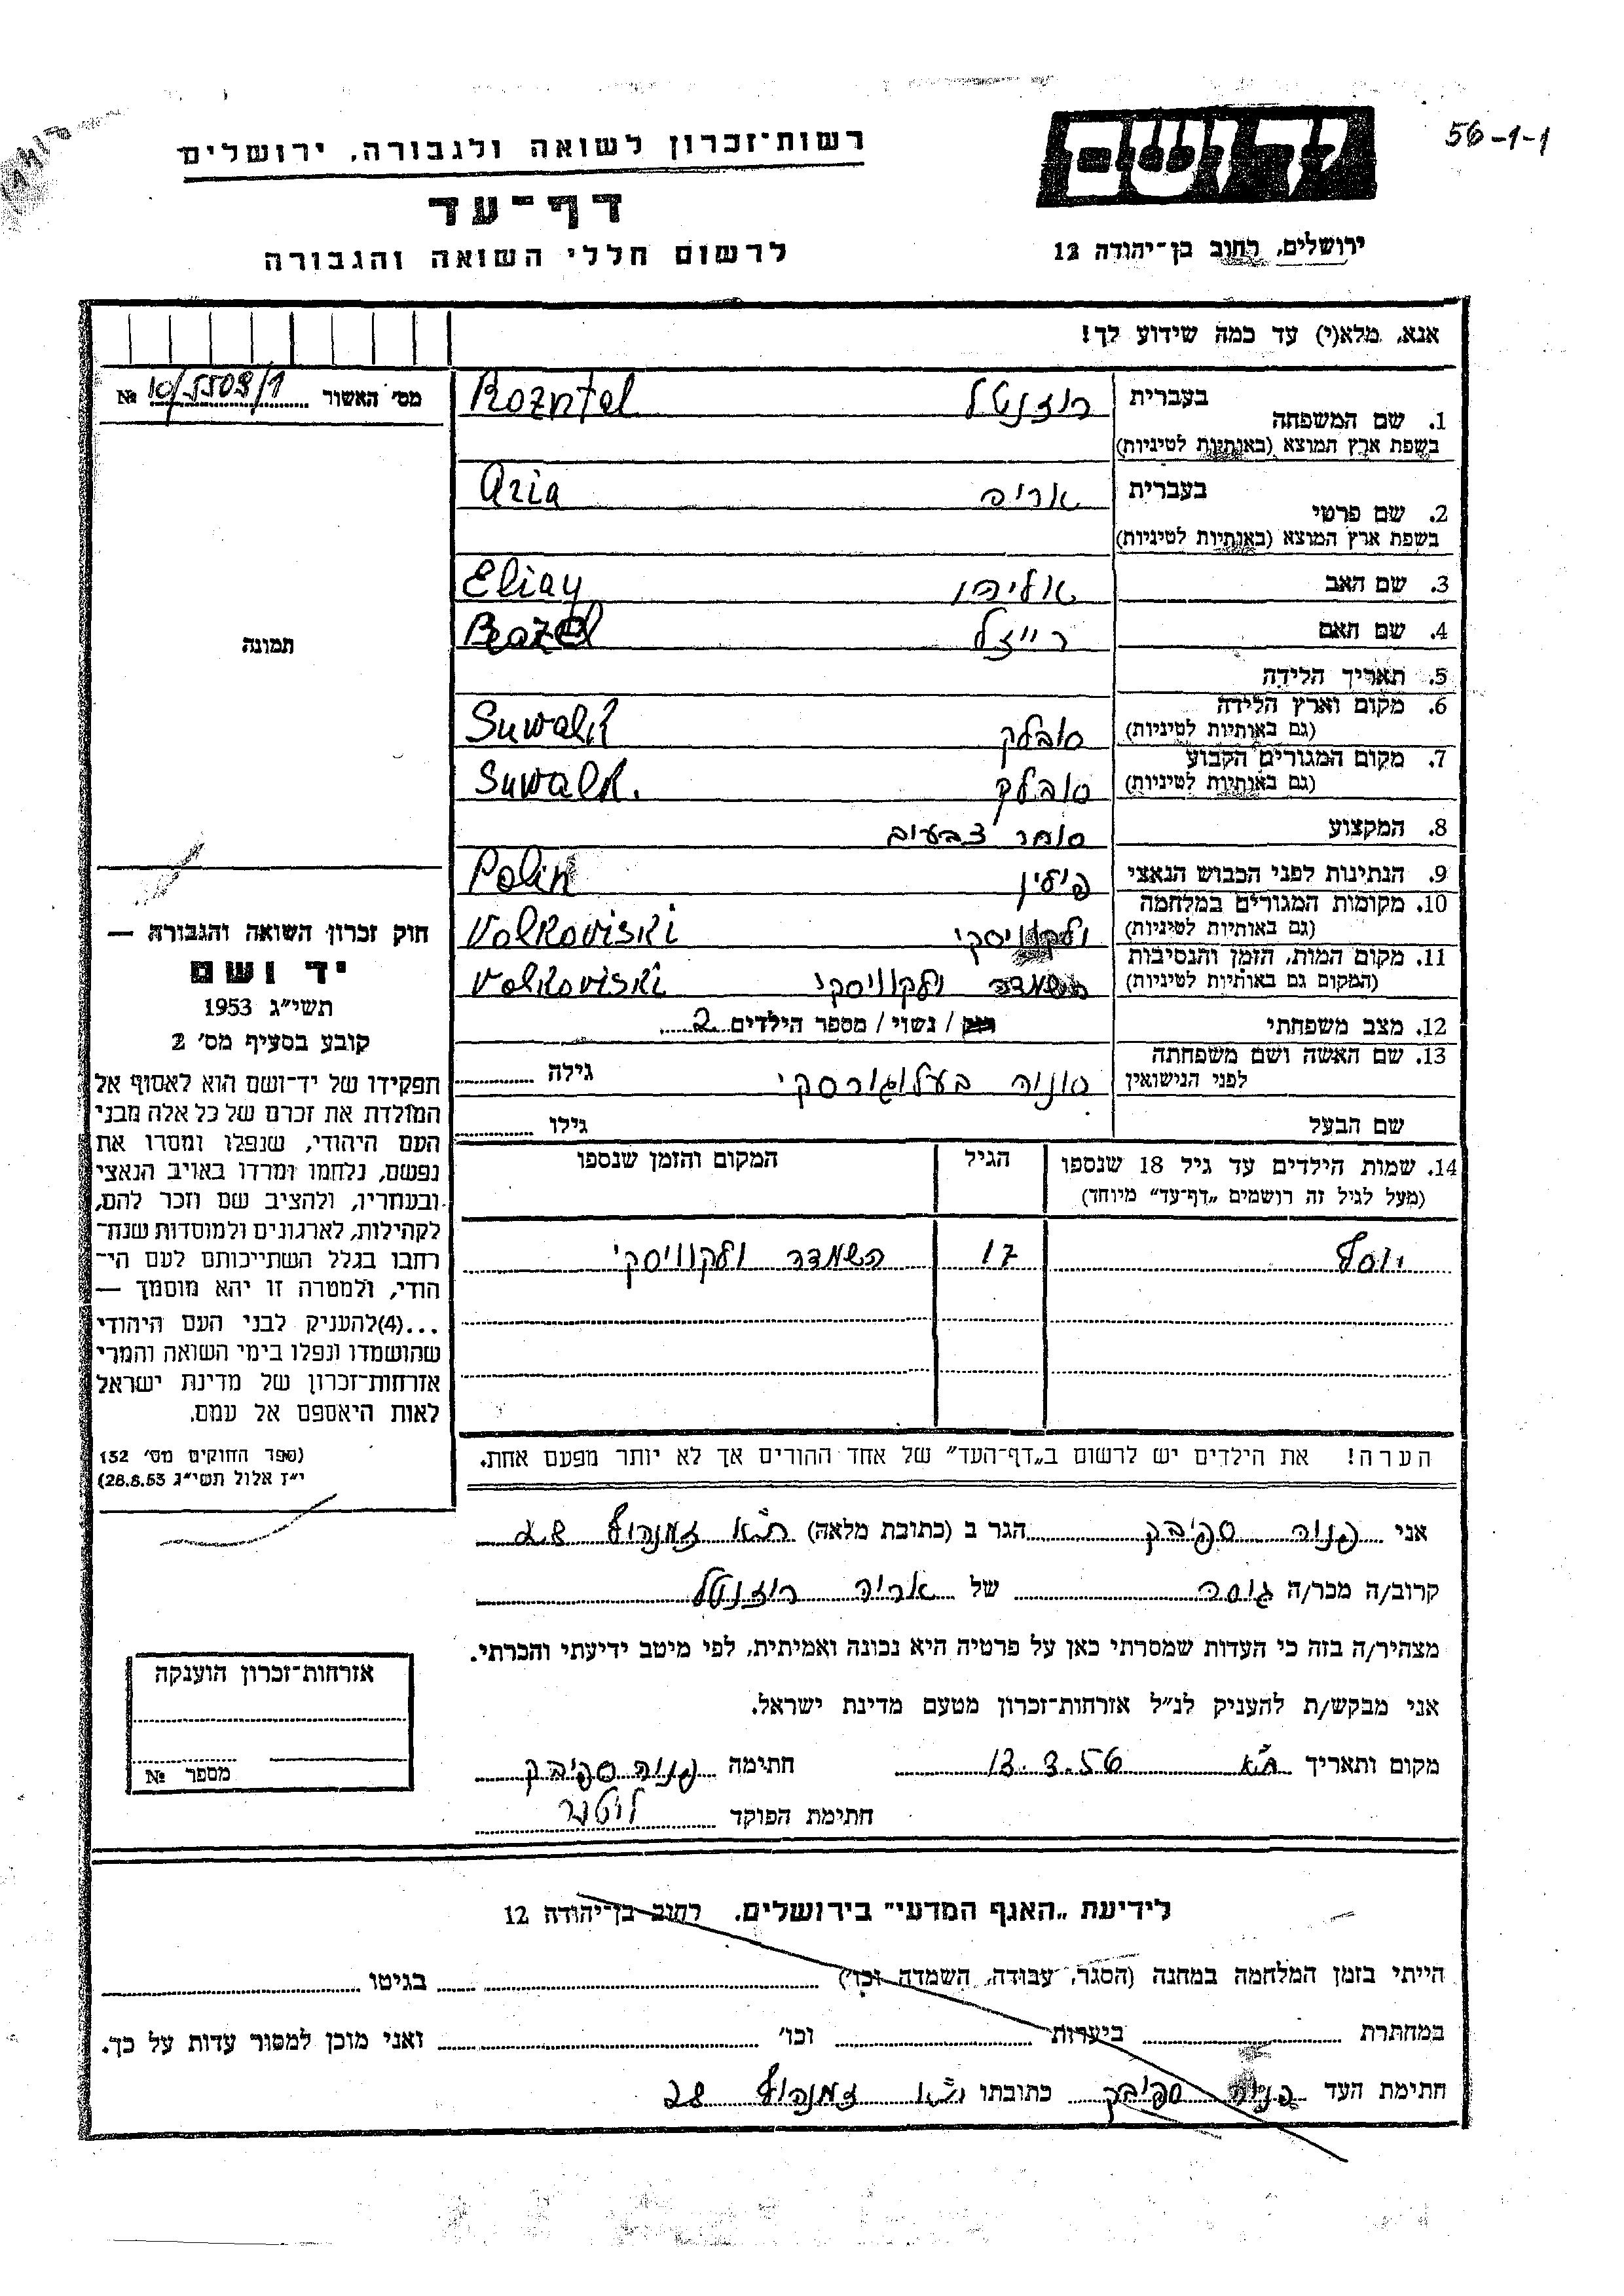 56-1-1
יד ושם
רשות־זכרון לשואה ולגבורה, ירושלים
דף־עד
לרשום חללי השואה והגבורה
ירושלים, רחוב בן־יהודה 12
אנא, מלא(י) עד כמה שידוע לך!
מס׳ האשור 10/5509/1 №
1. שם המשפחה בעברית רוזנטל Rozntel
בשפת ארץ המוצא (באותיות לטיניות)
2. שם פרטי בעברית אריה Aria
בשפת ארץ המוצא (באותיות לטיניות)
3. שם האב אליהו Eliay
4. שם האם רייזל
5. תאריך הלידה
6. מקום וארץ הלידה סובלק Suwalk
(גם באותיות לטיניות)
7. מקום המגורים הקבוע סובלק Suwalk.
(גם באותיות לטיניות)
8. המקצוע סוחר צבעים
9. הנתינות לפני הכבוש הנאצי פולין Polin
10. מקומות המגורים במלחמה ולקוויסקי Volkoviski
(גם באותיות לטיניות)
11. מקום המות, הזמן והנסיבות השמדה ולקוויסקי Volkoviski
(המקום גם באותיות לטיניות)
12. מצב משפחתי רוק / נשוי / מספר הילדים 2
13. שם האשה ושם משפחתה סוניה בעלוגורסקי גילה
לפני הנישואין
שם הבעל גילו
14. שמות הילדים עד גיל 18 שנספו הגיל המקום והזמן שנספו
(מעל לגיל זה רושמים „דף־עד” מיוחד)
יוסף 17 השמדה ולקוויסקי
הערה! את הילדים יש לרשום ב„דף־העד” של אחד ההורים אך לא יותר מפעם אחת.
תמונה
חוק זכרון השואה והגבורה —
יד ושם
תשי״ג 1953
קובע בסעיף מס׳ 2
תפקידו של יד־ושם הוא לאסוף אל
המולדת את זכרם של כל אלה מבני
העם היהודי, שנפלו ומסרו את
נפשם, נלחמו ומרדו באויב הנאצי
ובעוזריו, ולהציב שם וזכר להם,
לקהילות, לארגונים ולמוסדות שנח־
רחבו בגלל השתייכותם לעם הי־
הודי, ולמטרה זו יהא מוסמך —
...(4)להעניק לבני העם היהודי
שהושמדו ונפלו בימי השואה והמרי
אזרחות־זכרון של מדינת ישראל
לאות היאספם אל עמם.
(ספר החוקים מס׳ 132
י״ז אלול תשי״ג 28.8.53)
אני פניה ספיבק הגר ב (כתובת מלאה) ת״א זמנהוף 28
קרוב/ה מכר/ה גיסה של אריה רוזנטל
מצהיר/ה בזה כי העדות שמסרתי כאן על פרטיה היא נכונה ואמיתית, לפי מיטב ידיעתי והכרתי.
אני מבקש/ת להעניק לנ״ל אזרחות־זכרון מטעם מדינת ישראל.
מקום ותאריך ת״א 13.3.56 חתימה פניה ספיבק
חתימת הפוקד
אזרחות־זכרון הוענקה
מספר №
לידיעת „האגף המדעי” בירושלים, רחוב בן־יהודה 12
הייתי בזמן המלחמה במחנה (הסגר, עבודה, השמדה וכו׳) בגיטו
במחתרת ביערות וכו׳ ואני מוכן למסור עדות על כך.
חתימת העד פניה ספיבק כתובתו ת״א זמנהוף 28